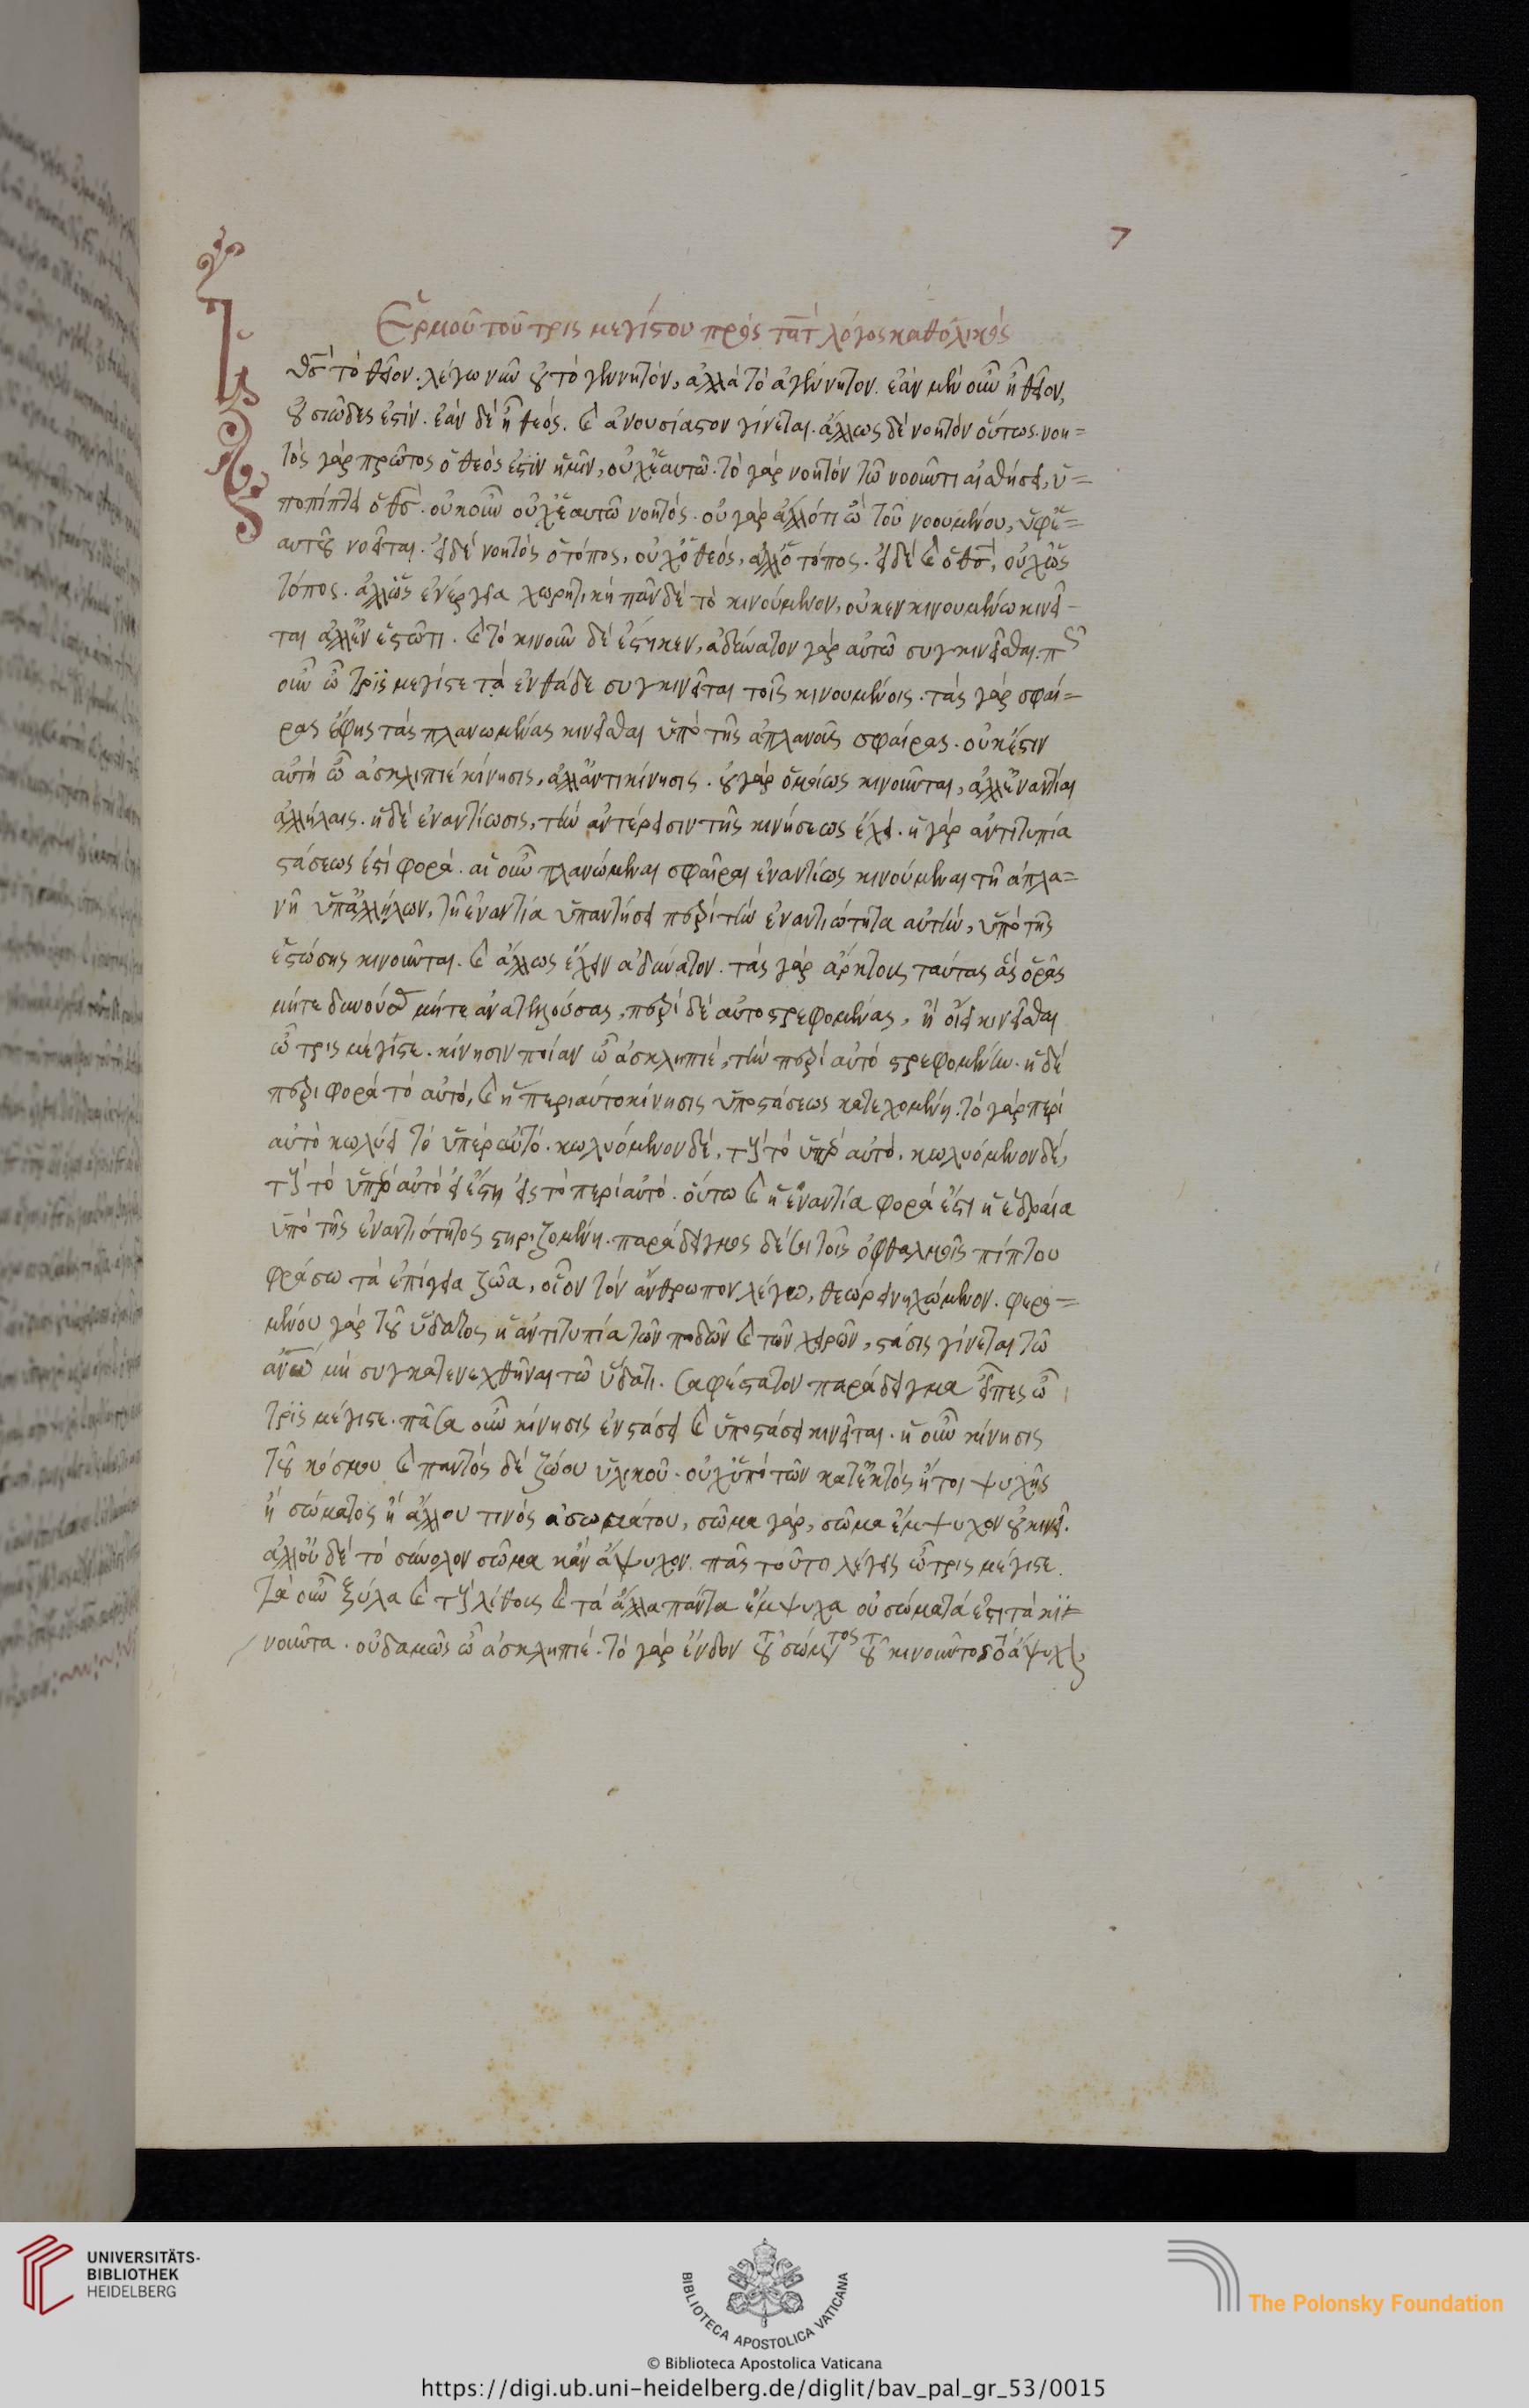 7
Ἑρμοῦ τοῦ τρις μεγίστου πρὸς τατ λόγος καθολικός
θς τὸ θεῖον. λέγω νῦν οὐ τὸ γεννητόν, ἀλλὰ τὸ ἀγέννητον. ἐὰν μὲν οὖν ἦ θεῖον,
οὐσιῶδες ἐστίν. ἐὰν δὲ ἦ θεός. καὶ ἀνουσίαστον γίνεται. ἄλλως δὲ νοητὸν οὕτως. νοη=
τὸς γὰρ πρῶτος ὁ θεὸς ἐστὶν ἡμῖν, οὐχ ἑαυτῶ. τὸ γὰρ νοητὸν τῶ νοοῦντι αἰσθήσει, ὑ=
ποπίπτει ὁ θς. οὐκοῦν οὐχ ἑαυτῶ νοητός. οὐ γὰρ ἄλλό τι ὢ τοῦ νοουμένου, ὑφ' ἑ=
αυτοῦ νοεῖται. εἰ δὲ νοητὸς ὁ τόπος, οὐχ ὁ θεός, ἀλλ' ὁ τόπος. εἰ δὲ καὶ ὁ θς, οὐχ ὡς
τόπος. ἀλλ' ὡς ἐνέργεια χωρητικὴ πᾶν δὲ τὸ κινούμενον, οὐκ ἐν κινουμένω κινεῖ-
ται ἀλλ' ἐν ἑστῶτι. καὶ τὸ κινοῦν δὲ ἕστηκεν, ἀδύνατον γὰρ αὐτῶ συγκινεῖσθαι. πς
οὖν ὦ τρὶς μέγιστε τὰ ἐνθάδε συγκινεῖται τοῖς κινουμένοις. τὰς γὰρ σφαί=
ρας ἔφης τὰς πλανωμένας κινεῖσθαι ὑπὸ τῆς ἀπλανοῦς σφαίρας. οὐκ ἔστιν
αὐτὴ ὦ ἀσκληπιὲ κίνησις, ἀλλ' ἀντικίνησις. οὐ γὰρ ὁμοίως κινοῦνται, ἀλλ' ἐναντίαι
ἀλλήλαις. ἡ δὲ ἐναντίωσις, τὴν ἀντέρεισιν τῆς κινήσεως ἔχει. ἡ γὰρ ἀντιτυπία
στάσεως ἐστὶ φορά. αἱ οὖν πλανώμεναι σφαῖραι ἐναντίως κινούμεναι τῆ ἀπλα=
νῆ ὑπ' ἀλλήλων, τῆ ἐναντία ὑπαντήσει περὶ τὴν ἐναντιώτητα αὐτὴν, ὑπὸ τῆς
ἑστώσης κινοῦνται. καὶ ἄλλως ἔχειν ἀδύνατον. τὰς γὰρ ἄρκτους ταύτας ἃς ὁρᾶς
μήτε δυνούσας μήτε ἀνατελλούσας, περὶ δὲ αὐτὸ στρεφομένας, ἢ οἴει κινεῖσθαι
ὦ τρις μέγιστε. κίνησιν ποίαν ὦ ἀσκληπιέ, τὴν περὶ αὐτὸ στρεφομένην. ἡ δὲ
περιφορὰ τὸ αὐτὸ, καὶ ἡ περιαὐτὸ κίνησις ὑποστάσεως κατεχομένη. τὸ γὰρ περὶ
αὐτὸ κωλύει τὸ ὑπὲρ αὐτό. κωλυόμενον δὲ, τὴν τὸ ὑπὲρ αὐτό. κωλυόμενον δὲ,
τὴν τὸ ὑπὲρ αὐτό εἰ ἔστη εἰς τὸ περὶ αὐτό. οὕτω καὶ ἡ ἐναντία φορὰ ἔστι ἡ ἑδραία
ὑπὸ τῆς ἐναντιότητος στηριζομένη. παράδειγμος δέ σοι τοῖς ὀφθαλμοῖς πίπτον
φράσω τὰ ἐπίγεια ζῶα, οἷον τὸν ἄνθρωπον λέγω, θεώρει νηχώμενον. φερο=
μένου γὰρ τοῦ ὕδατος ἡ ἀντιτυπία τῶν ποδῶν καὶ τῶν χειρῶν, στάσις γίνεται τῶ
ανω μὴ συγκατενεχθῆναι τῶ ὕδατι. σαφέστατον παράδειγμα εἶπες ὦ
τρὶς μέγιστε. πᾶσα οὖν κίνησις ἐν στάσει καὶ ὑποστάσει κινεῖται. ἡ οὖν κίνησις
τοῦ κόσμου καὶ παντὸς δὲ ζώου ὑλικοῦ. οὐχ ὑπὸ τῶν κατεκτὸς ἤτοι ψυχῆς
ἢ σώματος ἢ ἄλλου τινὸς ἀσωμάτου, σῶμα γὰρ, σῶμα ἔμψυχον οὐ κινεῖ.
ἀλλ' οὐ δὲ τὸ σύνολον σῶμα κἂν ἄψυχον. πᾶς τοῦτο λέγεις ὦ τρις μέγιστε.
τὰ οὖν ξύλα καὶ τοὺς λίθους καὶ τὰ ἄλλα πάντα ἔμψυχα οὐ σώματά ἐστι τὰ κϊ-
νοῦντα. οὐδαμῶς ὦ ἀσκληπιέ. τὸ γὰρ ἔνδον τοῦ σώματος τοῦ κινοῦντος τὸ ἄψυχον
UNIVERSITÄTS-
BIBLIOTHEK
HEIDELBERG
BIBLIOTECA APOSTOLICA VATICANA
The Polonsky Foundation
© Biblioteca Apostolica Vaticana
https://digi.ub.uni-heidelberg.de/diglit/bav_pal_gr_53/0015